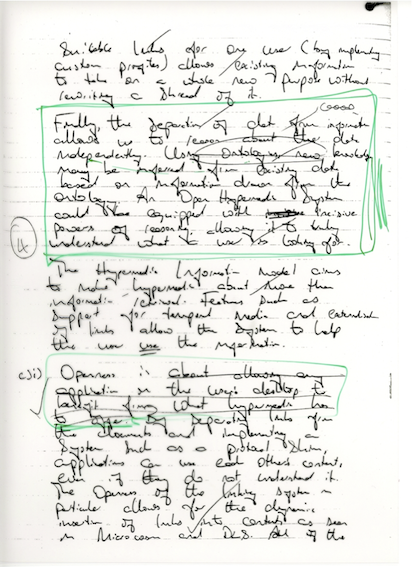 Suitable links for one user (by implementing
custom profiles) allows existing information
to take on a whole new purpose without
rewriting a shread of it.
Finally, the separation of data from information
allows us to reason about the data
independently. Using ontologies new knowledge
may be inferred from existing data
based on information drawn from the
ontology. An Open Hypermedia System
could be equipped with incisive
powers of reasoning allowing it to truly
understand what a user is looking for.
4
The Hypermedia Information model aims
to make hypermedia about more than
information retrieval. Features such as
support for temporal media and
of links allow the system to help
the user use the information.
c)i) Openness is about allowing any
application on the user's desktop to
benefit from what hypermedia has
to offer. By separating links from
the documents and implementing a
system such as a protocol shim,
applications can use each others content,
even if they do not understand it.
The Openness of the linking system in
particular allows for the dynamic
insertion of links into content as seen
in Microcosm and DLS. of the